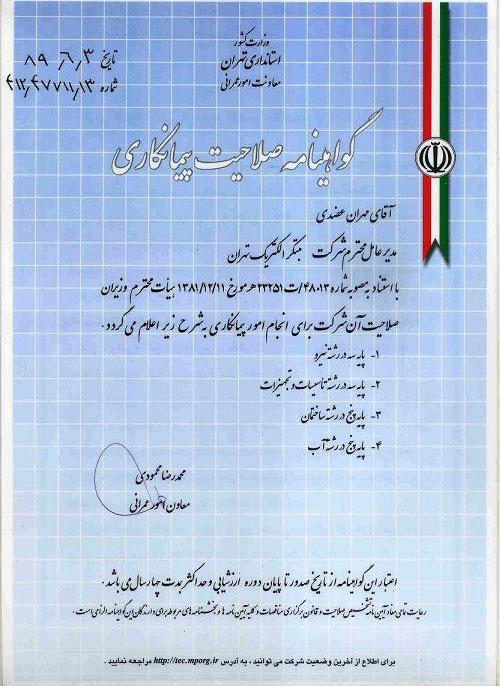 وزارت کشور
استانداری تهران
معاونت امور عمرانی
تاریخ ۸۹٫۶٫۳
شماره ۴۱۲٫۴۷۷۱۱٫۱۳
گواهینامه صلاحیت پیمانکاری
آقای مهران عضدی
مدیرعامل محترم شرکت مبتکر الکتریک تهران
با استناد به مصوبه شماره ۴۸۰۱۳/ت۲۳۲۵۱هـ مورخ ۱۳۸۱/۱۲/۱۱ هیأت محترم وزیران
صلاحیت آن شرکت برای انجام امور پیمانکاری به شرح زیر اعلام می گردد.
۱- پایه سه در رشته نیرو
۲- پایه سه در رشته تاسیسات و تجهیزات
۳- پایه پنج در رشته ساختمان
۴- پایه پنج در رشته آب
محمدرضا محمودی
معاون امور عمرانی
اعتبار این گواهینامه از تاریخ صدور تا پایان دوره ارزشیابی و حداکثر بمدت چهار سال می باشد.
رعایت تمامی مفاد آیین نامه تشخیص صلاحیت و قانون برگزاری مناقصات و کلیه آیین نامه ها و بخشنامه های مربوطه برای دارندگان این گواهینامه الزامی است.
برای اطلاع از آخرین وضعیت شرکت می توانید ، به آدرس http://tec.mporg.ir مراجعه نمایید.